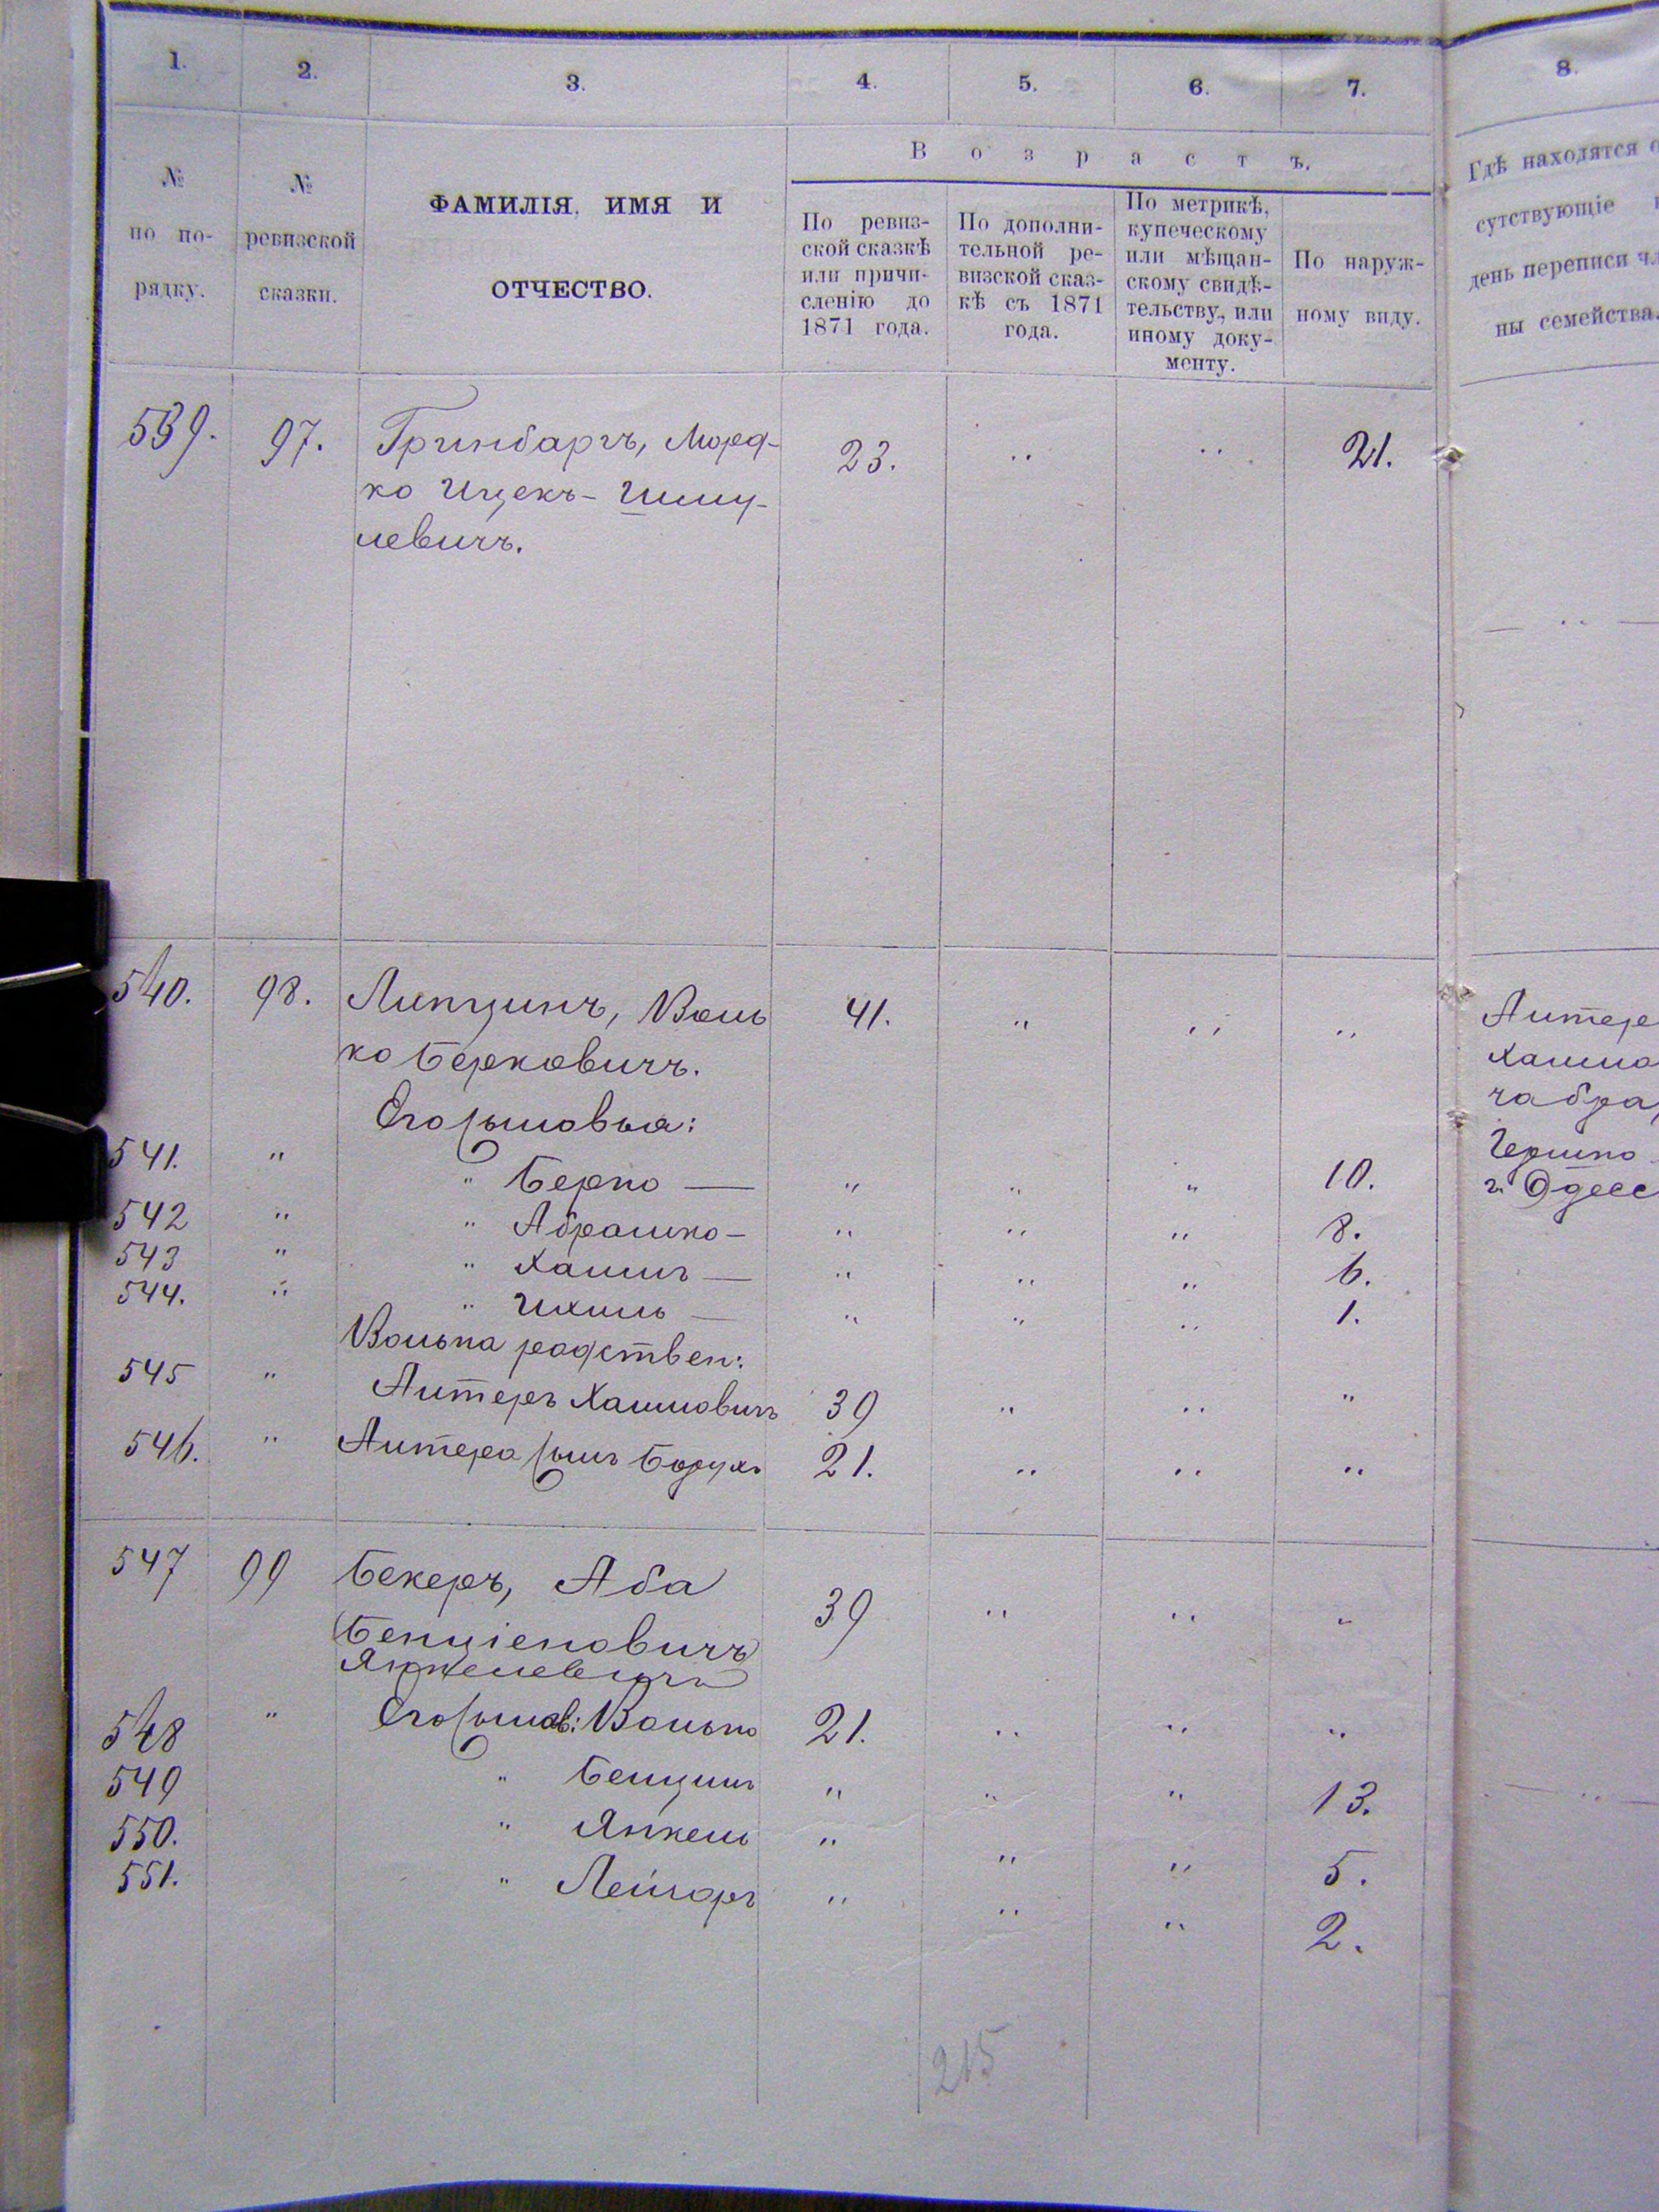 1. 2. 3. 4. 5. 6. 7. 8.
№ по по-рядку.
№ ревизской сказки.
ФАМИЛІЯ, ИМЯ И
ОТЧЕСТВО.
Возрастъ.
По ревиз-
ской сказкѣ
или причи-
сленію до
1871 года.
По дополни-
тельной ре-
визской сказ-
кѣ съ 1871
года.
По метрикѣ,
купеческому
или мѣщан-
скому свидѣ-
тельству, или
иному доку-
менту.
По наруж-
ному виду.
Гдѣ находятся о
сутствующіе
день переписи чл
ны семейства.
539. 97. Гринбаргъ, Морд- 23. " " 21.
ко Ицекъ-Шму-
левичъ.
540. 98. Липцинъ, Воль 41. " " "
ко Берковичъ.
Его сыновья:
541. " " Берко — " " " 10.
542 " " Абрашко — " " " 8.
543 " " Хаимъ — " " " 6.
544. " " Ихиль — " " " 1.
Волька родствен:
545 " Алтеръ Хаимовичъ 39 " " "
546. " Алтера сынъ Борухъ 21. " " "
547 99 Бекеръ, Аба 39 " " "
Бенціеновичъ
Янкелевичъ
548 " Его сынов: Волько 21. " " "
549 " Бенцинъ " " " 13.
550. " Янкель " " " 5.
551. " Лейзоръ " " " 2.
Алтеръ
Хаимо
ча бра
Гершко
г. Одесс
215